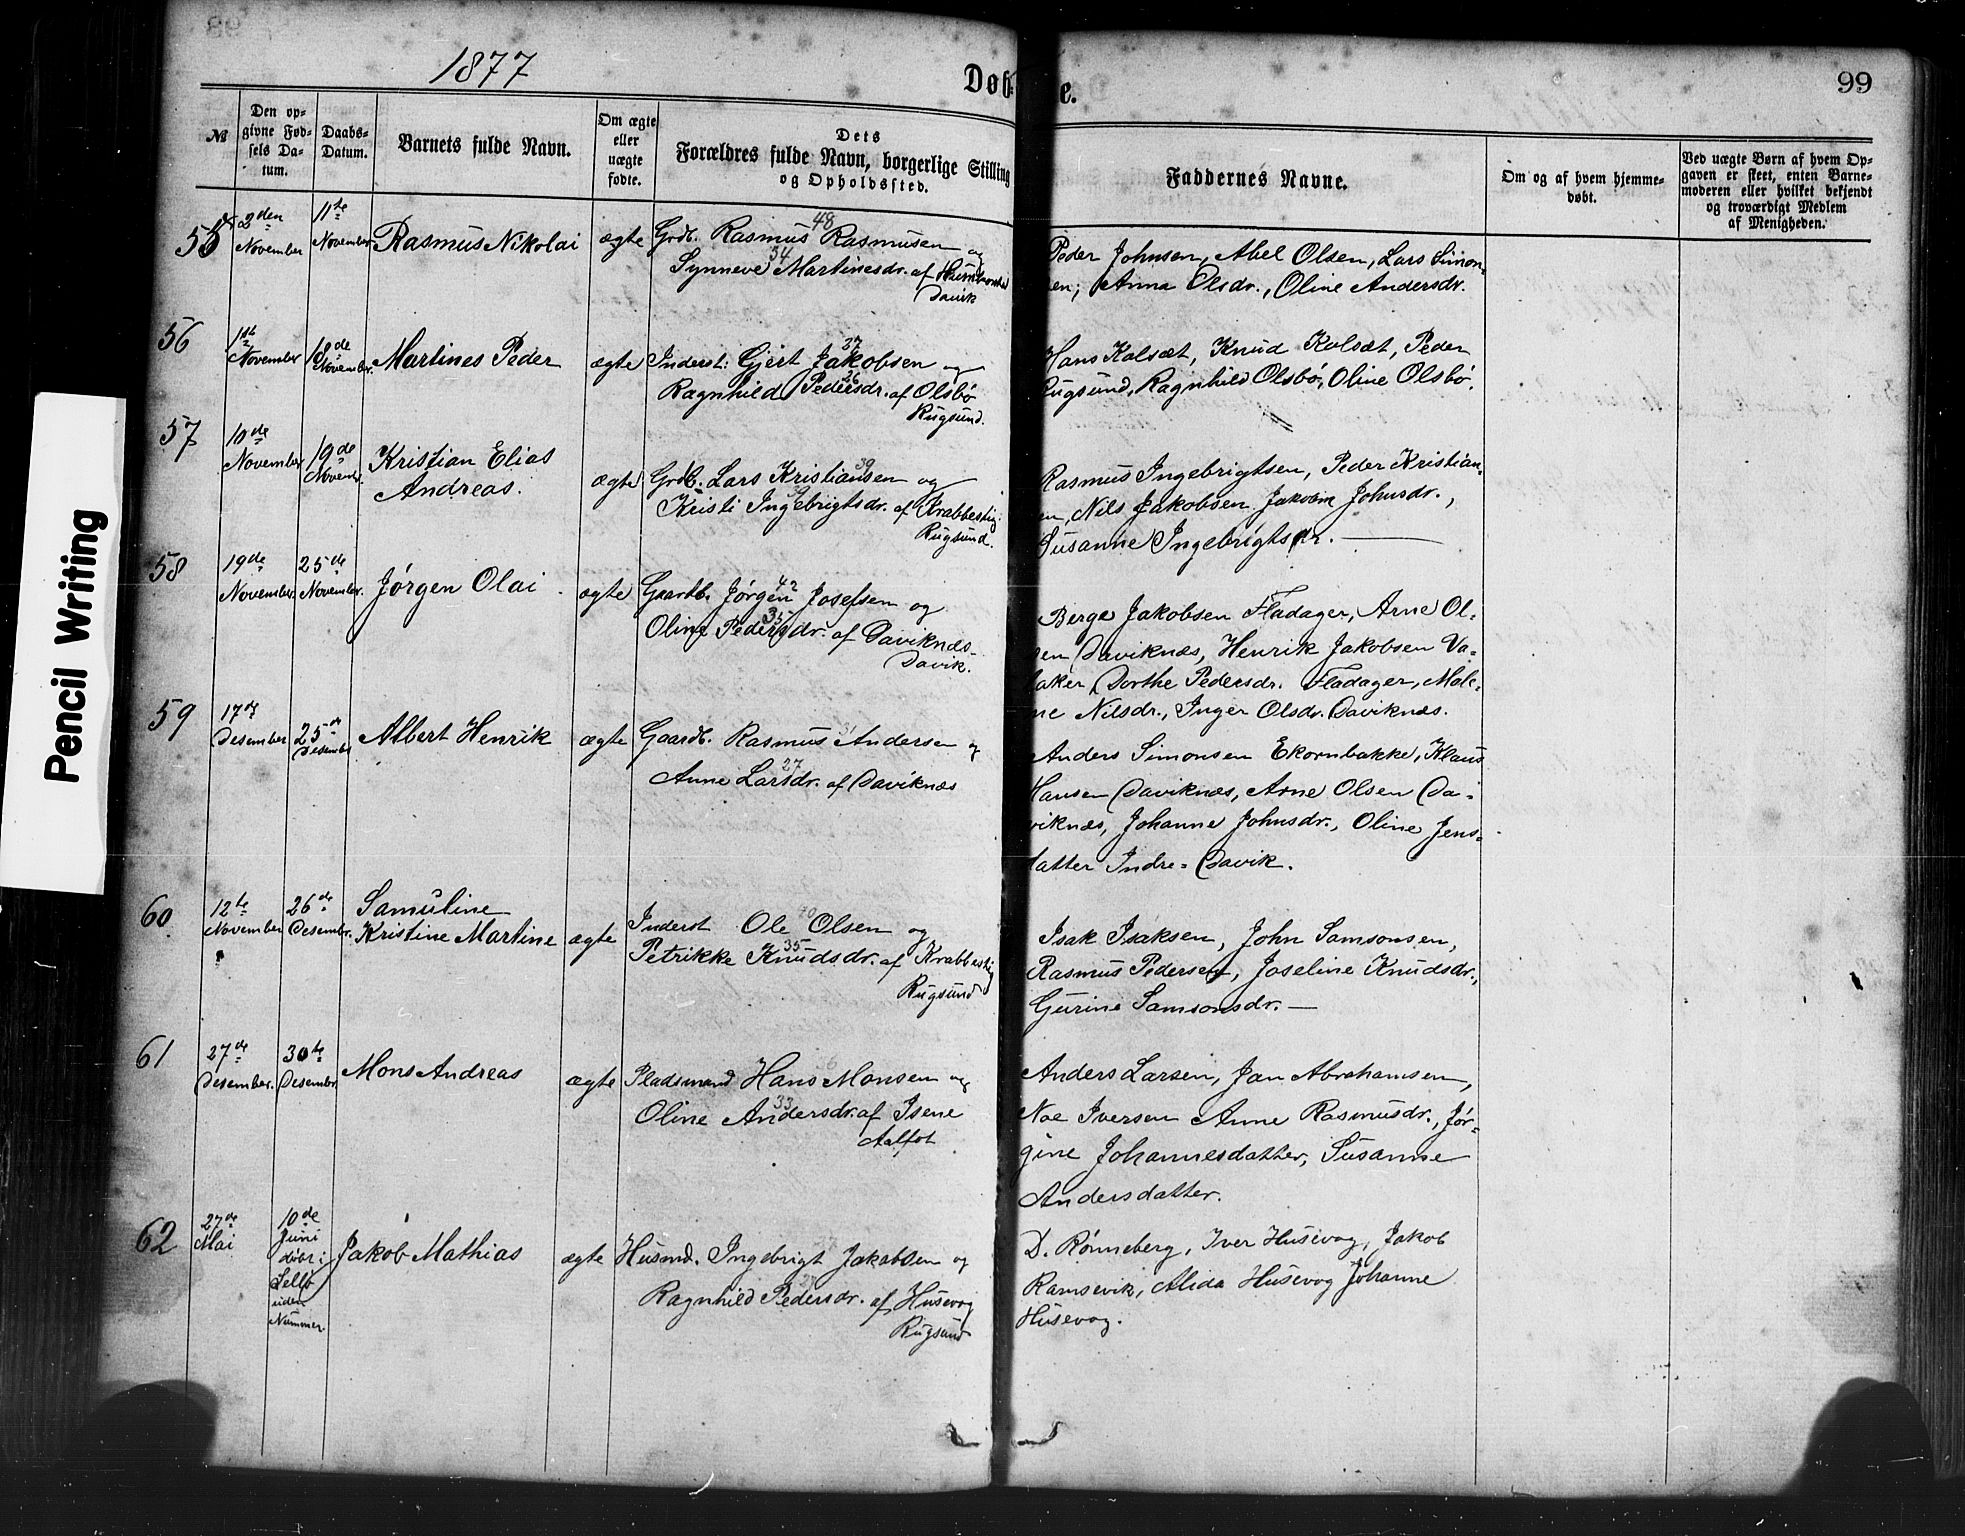 1877
Døbte.
99
Pencil Writing
№
Den opgivne Fødsels Datum.
Daabs-Datum.
Barnets fulde Navn.
Om ægte eller uægte fødte.
Dets Forældres fulde Navn, borgerlige Stilling og Opholdssted.
Faddernes Navne.
Om og af hvem hjemmedøbt.
Ved uægte Børn af hvem Opgaven er skeet, enten Barnemoderen eller hvilket bekjendt og troværdigt Medlem af Menigheden.
55
2den November
11te November
Rasmus Nikolai
ægte
Grdb. Rasmus Rasmusen og
48
34
Synneve Martinesdr. af
Davik
Peder Johnsen, Abel Olsen, Lars Simon-
sen; Anna Olsdr., Oline Andersdr.
56
1ste November
18de November.
Martines Peder
ægte
Inderst: Gjert Jakobsen og
37
26
Ragnhild Pedersdr. af Olsbø
Rugsund.
Hans Kolsæt, Knud Kolsæt, Peder
Rugsund, Ragnhild Olsbø, Oline Olsbø.
57
10de November
19de Novembr.
Kristian Elias
Andreas.
ægte
Grdb. Lars Kristiansen og
39
39
Kristi Ingebrigtsdr. af Krabbestig.
Rugsund.
Rasmus Ingebrigtsen, Peder Kristian-
sen, Nils Jakobsen Jakobin Johnsdr.,
Susanne Ingebrigtsdr.
58
19de November.
25de November.
Jørgen Olai
ægte
Gaardb. Jørgen Josefsen og
42
35
Oline Pedersdr. af Daviknæs
Davik.
Berge Jakobsen Fladager, Arne Ol-
sen Daviknæs, Henrik Jakobsen Va-
laker, Dorthe Pedersdr. Fladager, Male-
ne Nilsdr., Inger Olsdr. Daviknæs.
59
17de Desember
25de Desember
Albert Henrik
ægte
Gaardb. Rasmus Andersen og
31
27
Anne Larsdr. af Daviknæs
Anders Simonsen Ekornbakke, Klaus
Hansen Daviknæs, Arne Olsen Da-
viknæs, Johanne Johnsdr., Oline Jens-
datter Indre-Davik.
60
12te November
26de Desembr.
Samuline
Kristine Martine
ægte
Inderst Ole Olsen og
40
35
Petrikke Knudsdr. af Krabbestig
Rugsund
Isak Isaksen, John Samsonsen,
Rasmus Pedersen, Joseline Knudsdr.,
Gurine Samsonsdr.
61
27de Desember.
30te Desembr
Mons Andreas
ægte
Pladsmand Hans Monsen og
33
Oline Andersdr. af Isene
Aalfot
Anders Larsen, Jan Abrahamsen,
Noe Iversen Anne Rasmusdr., Jør-
gine Johannesdatter, Susanne
Andersdatter.
62
27de Mai
10de Juni
døbt i
Selje
uden
Nummer
Jakob Mathias
ægte
Husmd. Ingebrigt Jakobsen og
27
Ragnhild Pedersdr. af Husevog
Rugsund
D. Rønneberg, Iver Husevog, Jakob
Ramsevik, Alida Husevog Johanne
Husevog.